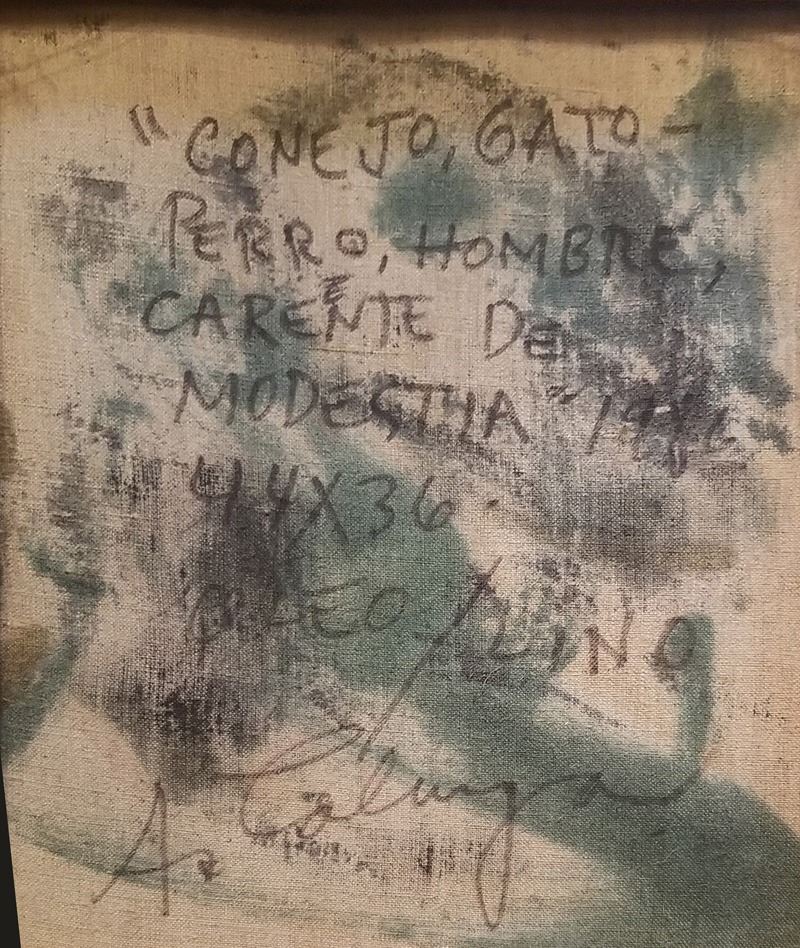 "CONEJO, GATO-
PERRO, HOMBRE,
CARENTE DE
MODESTIA" 1986
44X36.
OLEO / LINO
A. Colunga